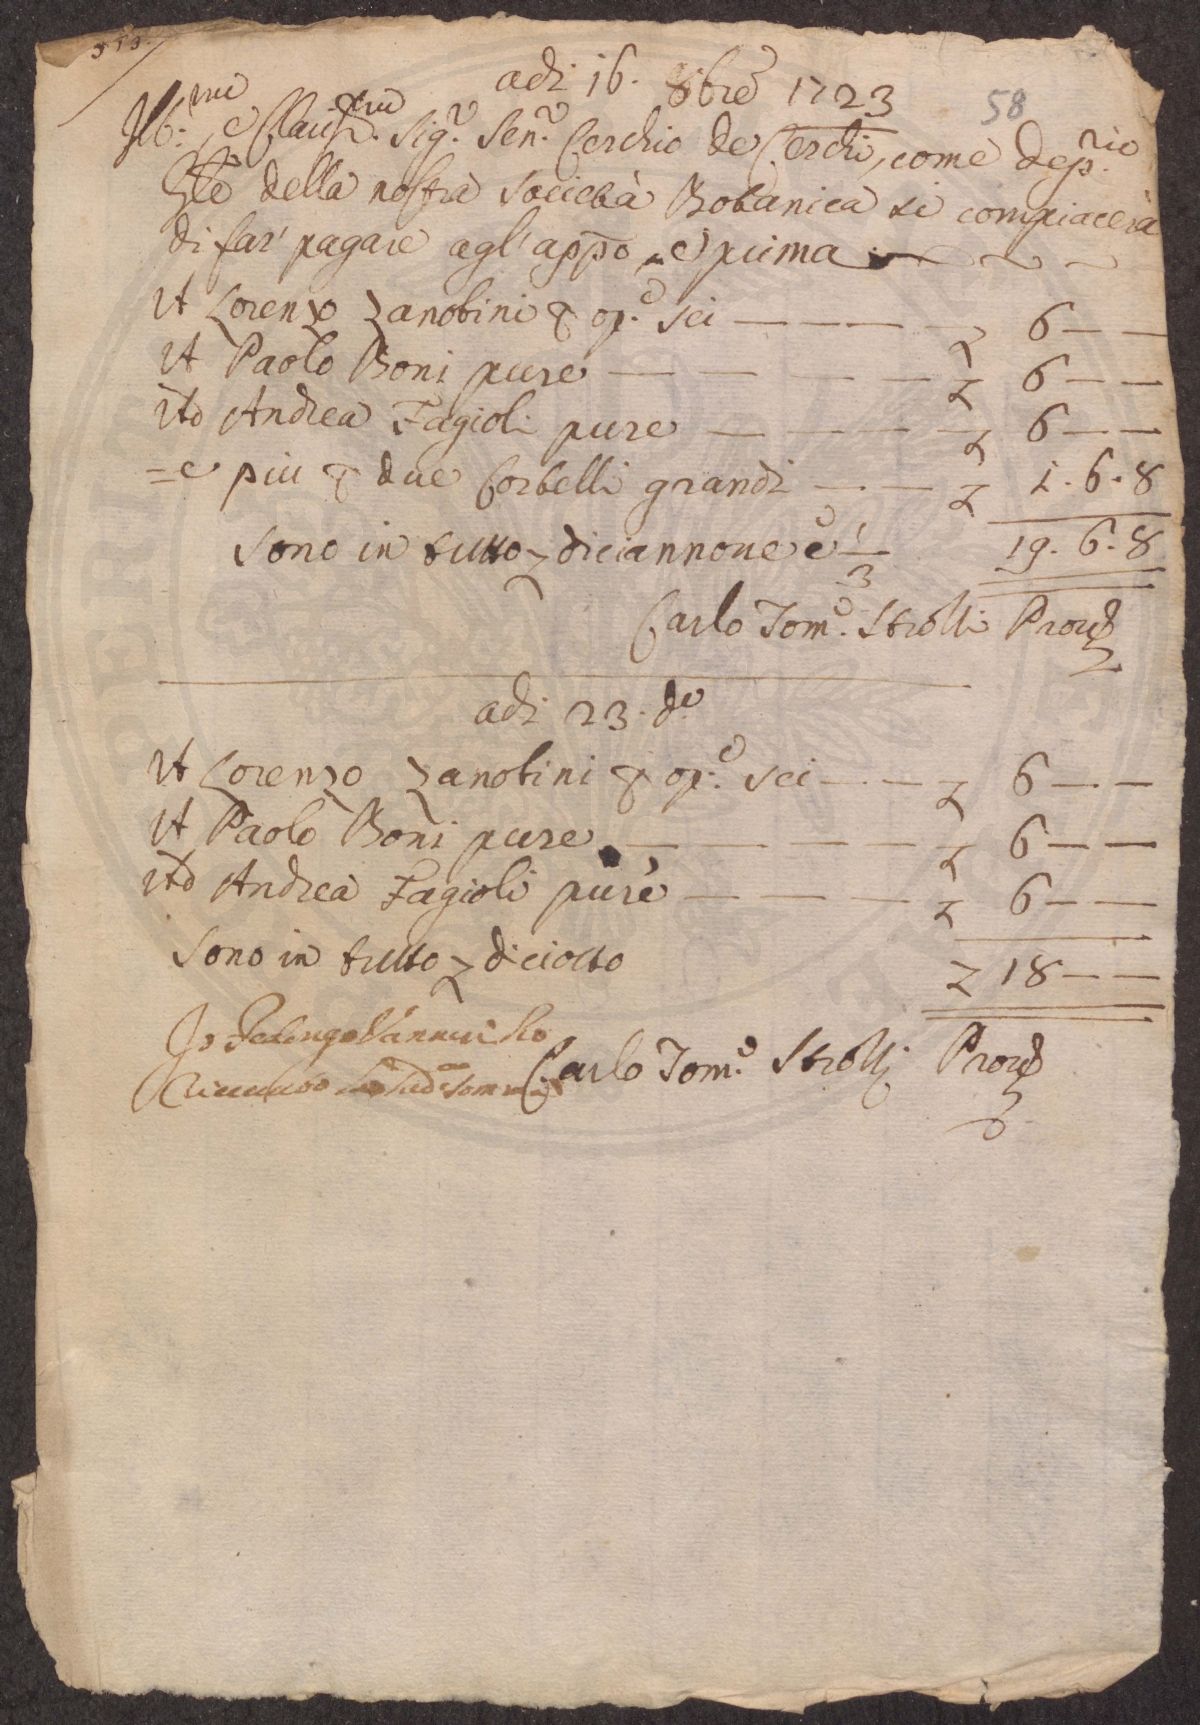 353.
58
adi 16. 8bre 1723
Ill:mo e Clariss.mo Sig.re Sen.re Cerchio de Cerchi, come Dep.rio
Gle della nostra società Botanica si compiacerà
di far' pagare agl'appo, e prima
A Lorenzo Zanobini p op.e sei — — — — £ 6 — —
A Paolo Boni pure — — — — — £ 6 — —
A do Andrea Fagioli pure — — — — £ 6 — —
= e piu p due Corbelli grandi — . — £ 1. 6. 8
Sono in tutto £ diciannove e 1/3 19. 6. 8
Carlo Tom.o Strolli Prov.
adi 23. do
A Lorenzo Zanobini p op.e sei — . — £ 6 — —
A Paolo Boni pure — — — — — £ 6 — —
A do Andrea Fagioli pure — — — — £ 6 — —
Sono in tutto £ diciotto £ 18 — —
Io Vannucci ho
Carlo Tom.o Strolli Prov.